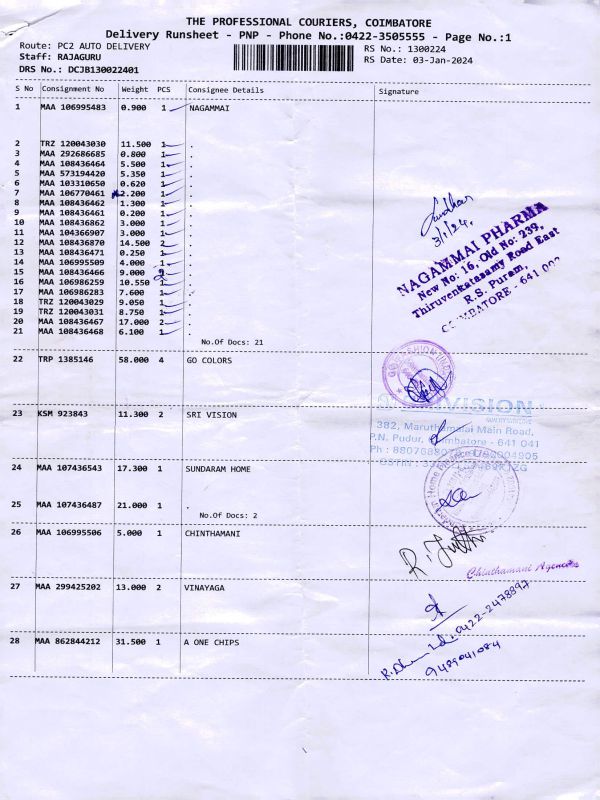 THE PROFESSIONAL COURIERS, COIMBATORE
Delivery Runsheet - PNP - Phone No.:0422-3505555 - Page No.:1
Route: PC2 AUTO DELIVERY RS No.: 1300224
Staff: RAJAGURU RS Date: 03-Jan-2024
DRS No.: DCJB130022401
S No Consignment No Weight PCS Consignee Details Signature
1 MAA 106995483 0.900 1 NAGAMMAI
2 TRZ 120043030 11.500 1 .
3 MAA 292686685 0.800 1 .
4 MAA 108436464 5.500 1 .
5 MAA 573194420 5.350 1 .
6 MAA 103310650 0.620 1 .
7 MAA 106770461 2.200 1 .
8 MAA 108436462 1.300 1 .
9 MAA 108436461 0.200 1 .
10 MAA 108436862 3.000 1 .
11 MAA 104366907 3.000 1 .
12 MAA 108436870 14.500 2 .
13 MAA 108436471 0.250 1 .
14 MAA 106995509 4.000 1 .
15 MAA 108436466 9.000 2 .
16 MAA 106986259 10.550 1 .
17 MAA 106986283 7.600 1 .
18 TRZ 120043029 9.050 1 .
19 TRZ 120043031 8.750 1 .
20 MAA 108436467 17.000 2 .
21 MAA 108436468 6.100 1 .
No.Of Docs: 21
3/1/24.
NAGAMMAI PHARMA
New No: 16, Old No: 239,
Thiruvenkatasamy Road East
R.S. Puram,
COIMBATORE - 641 002
22 TRP 1385146 58.000 4 GO COLORS
23 KSM 923843 11.300 2 SRI VISION
VISION
382, Maruthamalai Main Road,
P.N. Pudur, Coimbatore - 641 041
24 MAA 107436543 17.300 1 SUNDARAM HOME
25 MAA 107436487 21.000 1 .
No.Of Docs: 2
26 MAA 106995506 5.000 1 CHINTHAMANI
Chinthamani Agencies
27 MAA 299425202 13.000 2 VINAYAGA
0422-2478897
28 MAA 862844212 31.500 1 A ONE CHIPS
9489041084